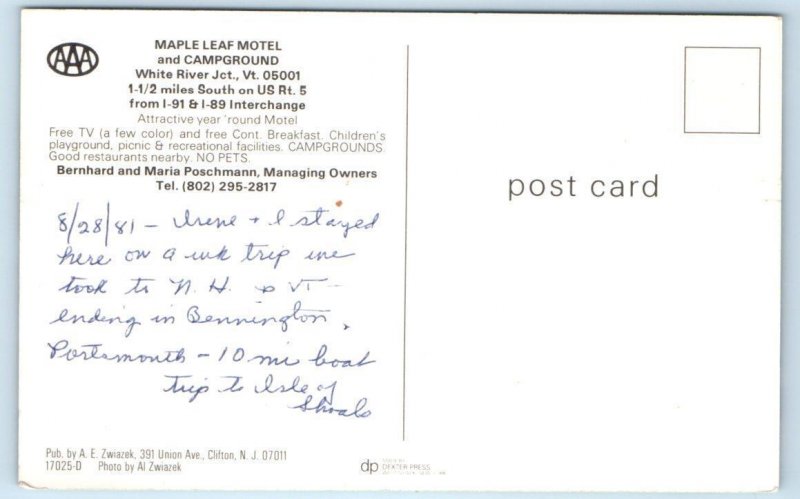 AAA
MAPLE LEAF MOTEL
and CAMPGROUND
White River Jct., Vt. 05001
1-1/2 miles South on US Rt. 5
from I-91 & I-89 Interchange
Attractive year 'round Motel
Free TV (a few color) and free Cont. Breakfast. Children's
playground, picnic & recreational facilities. CAMPGROUNDS.
Good restaurants nearby. NO PETS.
Bernhard and Maria Poschmann, Managing Owners
Tel. (802) 295-2817
8/28/81 - Irene + I stayed
here on a wk trip we
took to N. H. & VT -
ending in Bennington,
Portsmouth - 10 mi boat
trip to Isle of
Shoals
post card
Pub. by A. E. Zwiazek, 391 Union Ave., Clifton, N. J. 07011
17025-D Photo by Al Zwiazek
dp
DEXTER PRESS